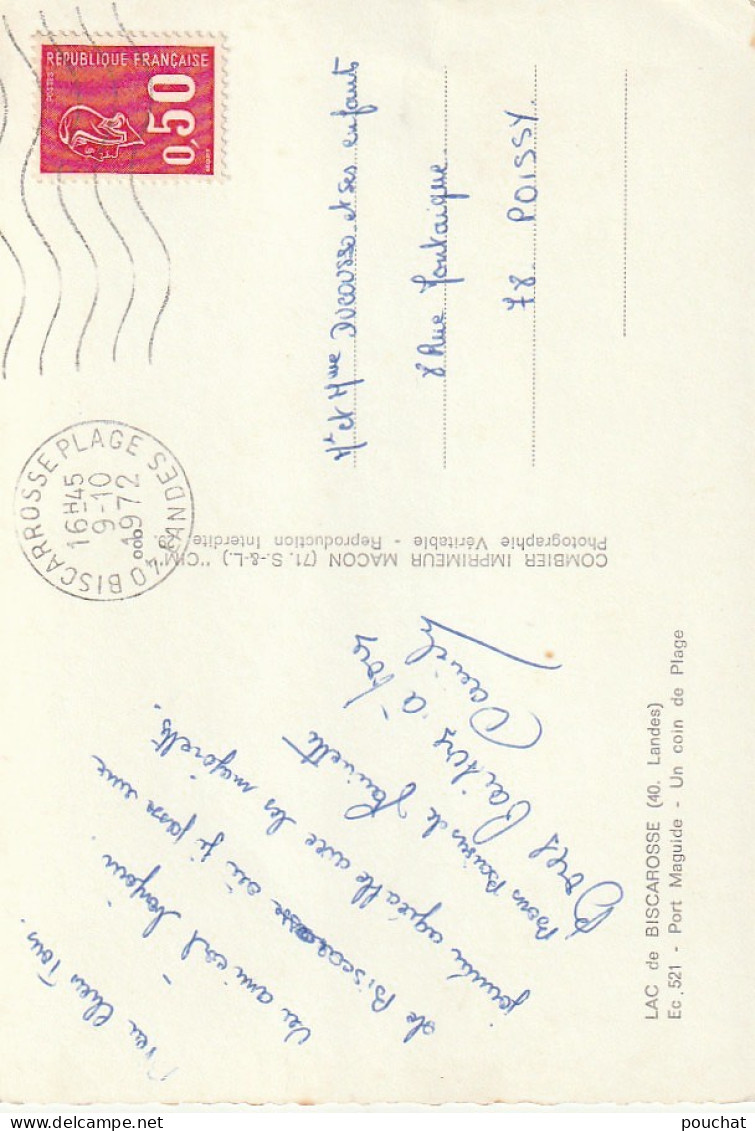 RÉPUBLIQUE FRANÇAISE
POSTES
0,50
40 BISCARROSSE PLAGE LANDES
16H45
9-10
1972
Mr et Mme DUCOUSSO et ses enfants
8 Rue Montaigne.
78. POISSY.
COMBIER IMPRIMEUR MACON (71. S.-&-L.) "CIM"
Photographie Véritable - Reproduction Interdite.
Mes Chers Tous.
Un amical bonjour
de Biscarosse où je passe une
journée agréable avec les majorettes.
Bons Baisers de
Bons Baisers à tous
LAC de BISCAROSSE (40. Landes)
Ec. 521 - Port Maguide - Un coin de Plage
pouchat